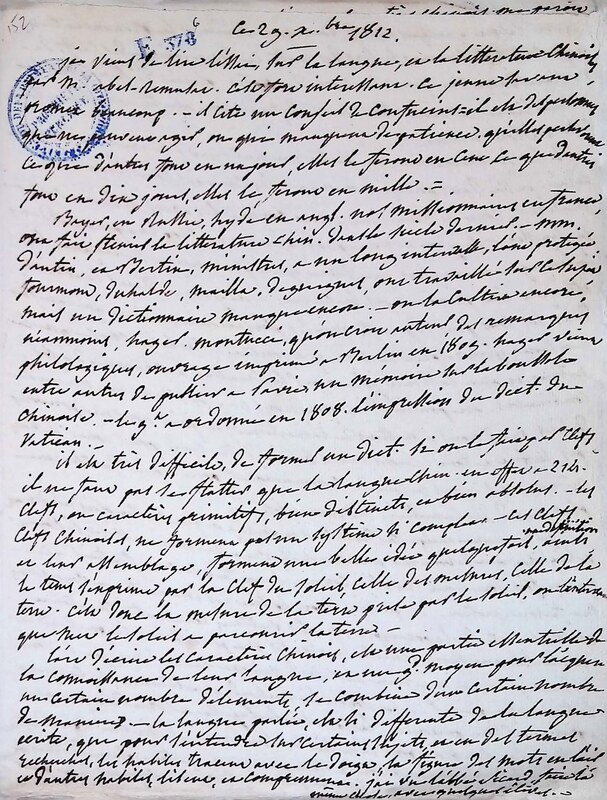 152
E 378 6
ce 29. x.bre 1812.
j'ai viens de lire l'essai, sur la langue, et la littérature chinoise
par M. abel-remusat. c'est fort interessant. ce jeune homme
promet beaucoup. - il cite un conseil de confucius = il est des personnes
qui ne peuvent agir, ou qui manquent de patience, qu'elles perseverent
ce que d'autres font en un jour, elles le feront en cent, ce que d'autres
font en dix jours, elles le feront en mille. =
Bayer, en Russie, hyde en angl. nos missionnaires en france,
ont fait fleurir la littérature chin. dans le siecle dernier. - mm.
d'antin, et Bertin, ministres, a un long intervalle, l'ont protégée
fourmont, duhalde, mailla, deguignes, ont travaillé sur ce sujet
mais un dictionnaire manque encore. - on la cultive encore,
néanmoins, hager, montucci, qu'on croit auteur des remarques
philologiques, ouvrage imprimé a Berlin en 1809. hager vient
entre autres de publier a Pavie un mémoire sur la boussole
chinoise. - le g.t a ordonné en 1808. l'impression du dict. du
Vatican. -
il est très difficile, de former un dict. si on le fait par clefs
il ne faut pas se flatter que la langue chin. en offre a 214.
clefs, ou caractères primitifs, bien distincts, et bien absolus. - les
clefs chinoises, ne forment pas un système si complet. - ces clefs
et leur assemblage, forment une belle idée quelquefois, ainsi
definition
le tems s'exprime par la clef du soleil, celle des mesures, celle de la
terre. c'est donc la mesure de la terre prise par le soleil, ou l'intervalle
que met le soleil a parcourir la terre -
l'art d'écrire les caractères chinois, est une partie essentielle de
la connoissance de leur langue, et un g.d moyen pour l'acquerir
un certain nombre d'élements, se combine d'un certain nombre
de manieres. - la langue parlée, est si differente de la langue
ecrite, que pour s'entendre sur certains sujets, et en des termes
recherchés, les habiles tracent avec le doigt, la figure des mots en l'air
et d'autres habiles, lisent, et comprennent. j'ai vu l'abbé sicard, faire la
même chose, avec quelques élèves. -